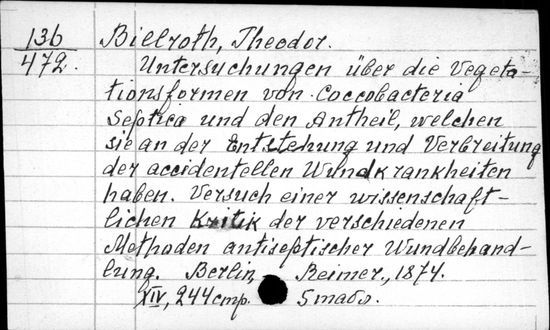 136 Billroth, Theodor.
472. Untersuchungen über die Vegeta-
tionsformen von Coccobacteria
Septica und den Antheil, welchen
sie an der Entstehung und Verbreitung
der accidentellen Wundkrankheiten
haben. Versuch einer wissenschaft-
lichen Kritik der verschiedenen
Methoden antiseptischer Wundbehand-
lung. Berlin, Reimer, 1874.
XIV, 244 стр.